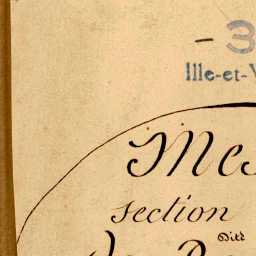 - 3
Ille-et-V
Mes
section
Dite